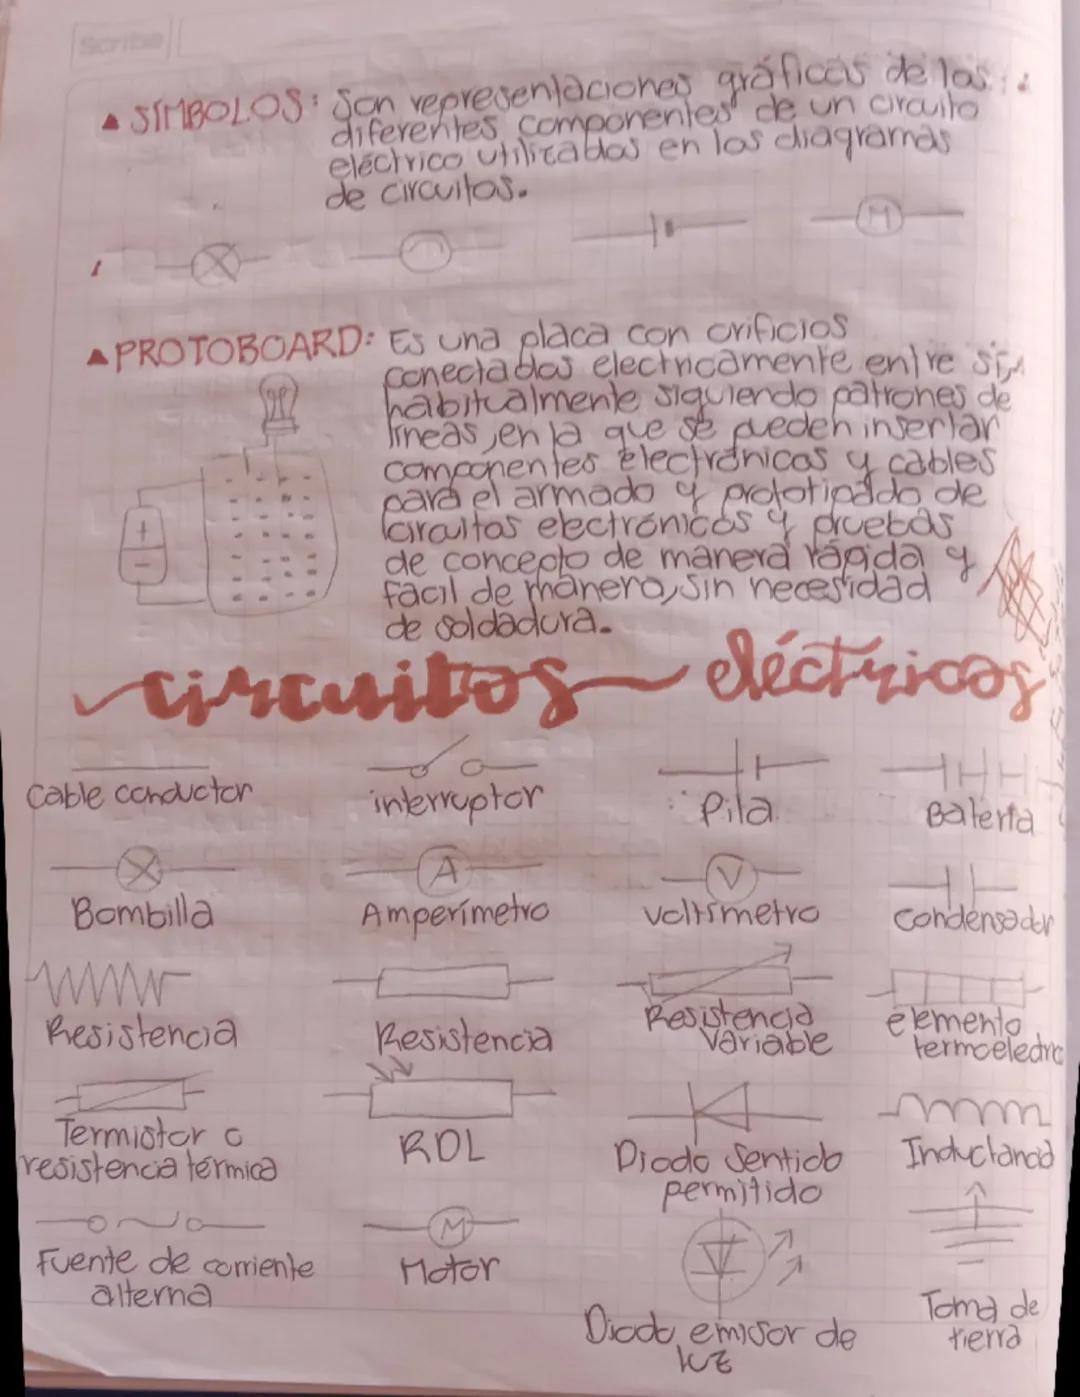 Scribe
▲ SÍMBOLOS: Son representaciones gráficas de los
diferentes componentes de un circuito
eléctrico utilizados en los diagramas
de circuitos.
M
▲ PROTOBOARD: Es una placa con orificios
conectados electricamente entre sí,
habitualmente siguiendo patrones de
líneas, en la que se pueden insertar
componentes electrónicos y cables
para el armado y prototipado de
circuitos electrónicos y pruebas
de concepto de manera rápida y
fácil de manera, sin necesidad
de soldadura.
+
-
circuitos eléctricos
Cable conductor interruptor Pila Batería
A V
Bombilla Amperímetro voltímetro Condensador
Resistencia Resistencia Resistencia variable elemento termoelectric
Termistor o resistencia térmica RDL Diodo Sentido permitido Inductancia
M
Fuente de corriente alterna Motor Diodo emisor de luz Toma de tierra